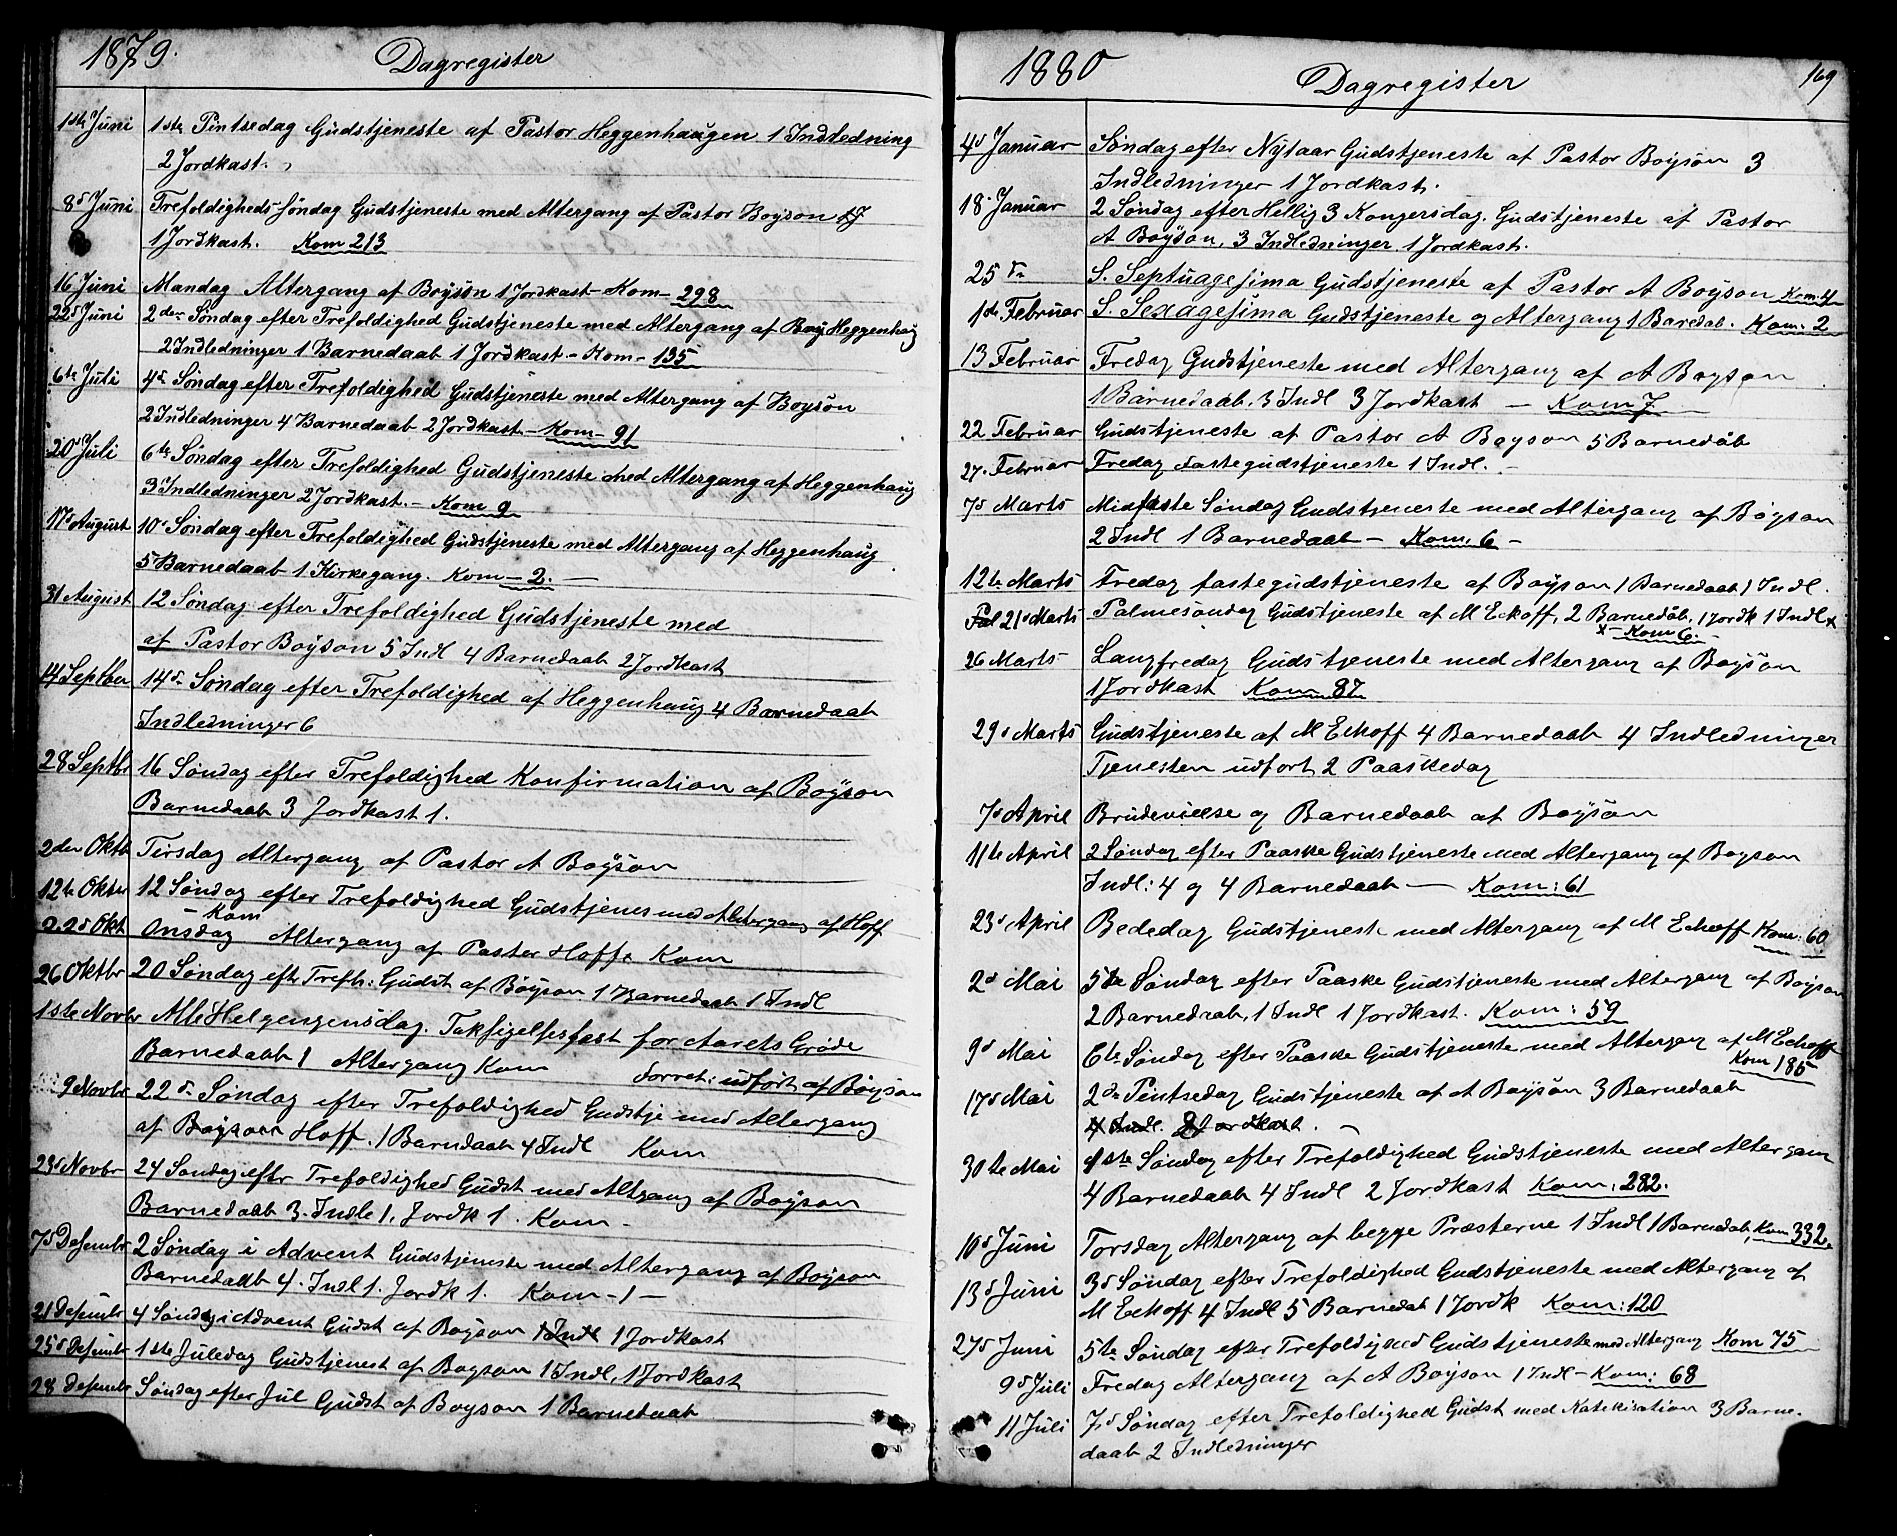 1879. Dagregister
1ste Juni 1ste Pintsedag Gudstjeneste af Pastor Heggenhaugen 1 Indledning
2 Jordkast.
8d Juni Trefoldigheds-Søndag Gudstjeneste med Altergang af Pastor Boyson
1 Jordkast. Kom 213
16 Juni Mandag Altergang af Boyson 1 Jordkast - Kom - 298
22d Juni 2den Søndag efter Trefoldighed Gudstjeneste med Altergang af Heggenhaug
2 Indledninger 1 Barnedaab 1 Jordkast - Kom - 135
6te Juli 4d Søndag efter Trefoldighed Gudstjeneste med Altergang af Boyson
2 Indledninger 4 Barnedaab 2 Jordkast - Kom - 91
20d Juli 6te Søndag efter Trefoldighed Gudstjeneste med Altergang af Heggenhaug
3 Indledninger 2 Jordkast. - Kom 9
17d August 10d Søndag efter Trefoldighed Gudstjeneste med Altergang af Heggenhaug
5 Barnedaab 1 Kirkegang. Kom - 2. -
31 August 12 Søndag efter Trefoldighed Gudstjeneste med
af Pastor Boyson 5 Indl 4 Barnedaab 2 Jordkast
14 Septber 14d Søndag efter Trefoldighed af Heggenhaug 4 Barnedaab
Indledninger 6
28 Septbr 16 Søndag efter Trefoldighed Konfirmation af Boyson
Barnedaab 3 Jordkast 1.
2den Oktb Tirsdag Altergang af Pastor A Boyson
12te Oktbr 12 Søndag efter Trefoldighed Gudstjenes med Altergang af Hoff
- Kom
22d Okt Onsdag Altergang af Pastor Hoff. Kom
26 Oktbr 20 Søndag eftr Trefh: Gudst af Boyson 1 Barnedaab 1 Indl
1ste Novbr Alle Helgengensdag. Taksigelsesfest for Aarets Grøde
Barnedaab 1 Altergang Kom Forret: udført af Boyson
9 Novbr 22d Søndag efter Trefoldighed Gudstje med Altergang
af Boyson Hoff. 1 Barndaab 4 Indl Kom
23d Novbr 24 Søndag eftr Trefoldighed Gudst med Altgang af Boyson
Barnedaab 3. Indle 1. Jordk 1. Kom -
7d Desembr 2 Søndag i Advent Gudstjeneste med Altergang af Boyson
Barnedaab 4. Indl 1. Jordk 1. Kom - 1 -
21 Desembr 4 Søndag i Advent Gudst af Boyson 1 Indl 1 Jordkast
25d Desembr 1ste Juledag Gudstjenest af Boyson 1 Indl, 1 Jordkast
28 Desembr Søndag efter Jul Gudst af Boyson 1 Barnedaab
1880 Dagregister 169
4d Januar Søndag efter Nytaar Gudstjeneste af Pastor Boyson 3
Indledninger 1 Jordkast.
18 Januar 2 Søndag efter Hellig 3 Kongersdag. Gudstjeneste af Pastor
A Boyson, 3 Indledninger 1 Jordkast.
25 d S. Septuagesima Gudstjeneste af Pastor A Boyson Kom 4
1ste Februar S. Sexagesima Gudstjeneste og Altergang 1 Baredab. Kom: 2
13 Februar Fredag Gudstjeneste med Altergang af A Boyson
1 Barnedaab, 3 Indl 3 Jordkast - Kom 7
22 Februar Gudstjeneste af Pastor A Boyson 5 Barnedåb
27. Februar Fredag Fastegudstjeneste 1 Indl. -
7d Marts Midfaste Søndag Gudstjeneste med Altergang af Boyson
2 Indl 1 Barnedaab - Kom. 6 -
12te Marts Fredag fastegudstjeneste af Boyson 1 Barnedaab 1 Indl.
Pal 21d Marts Palmesøndag Gudstjeneste af M Eckoff, 2 Barnedåb, 1 Jordk 1 Indl x
x - Kom 6. -
26 Marts Langfredag Gudstjeneste med Altergang af Boyson
1 Jordkast Kom 87
29d Marts Gudstjeneste af M Eckoff 4 Barnedaab 4 Indledninger
Tjenesten udført 2 Paaskedag
7d April Brudevielse og Barnedaab af Boyson
11te April 2 Søndag efter Paaske Gudstjeneste med Altergang af Boyson
Indl: 4 og 4 Barnedaab - Kom: 61
23d April Bededag Gudstjenest med Altergang af M Eckoff Kom: 60
2d Mai 5te Søndag efter Paaske Gudstjeneste med Altergang af Boyson
2 Barnedaab, 1 Indl 1 Jordkast. Kom: 59
9d Mai 6te Søndag efter Paaske Gudstjeneste med Altergang af M Eckoff
Kom 185
17d Mai 2d Pintsedag Gudstjeneste af A Boyson 3 Barnedaab
4 Indl. 2 Jordkast. -
30te Mai 1ste Søndag efter Trefoldighed Gudstjeneste med Altergan
4 Barnedaab 4 Indl 2 Jordkast Kom: 282.
10d Juni Torsdag Altergang af begge Præsterne 1 Indl 1 Barnedab, Kom 332.
13d Juni 3d Søndag efter Trefoldighed Gudstjeneste med Altergang af
M Eckoff 4 Indl 5 Barnedab 1 Jordk Kom: 120
27d Juni 5te Søndag efter Trefoldighed Gudstjeneste med Altergang Kom 75
9d Juli Fredag Altergang af A Boyson 1 Indl - Kom: 68
11 Juli 7d Søndag efter Trefoldighed Gudst med Katekisation 3 Barne-
daab 2 Indledninger